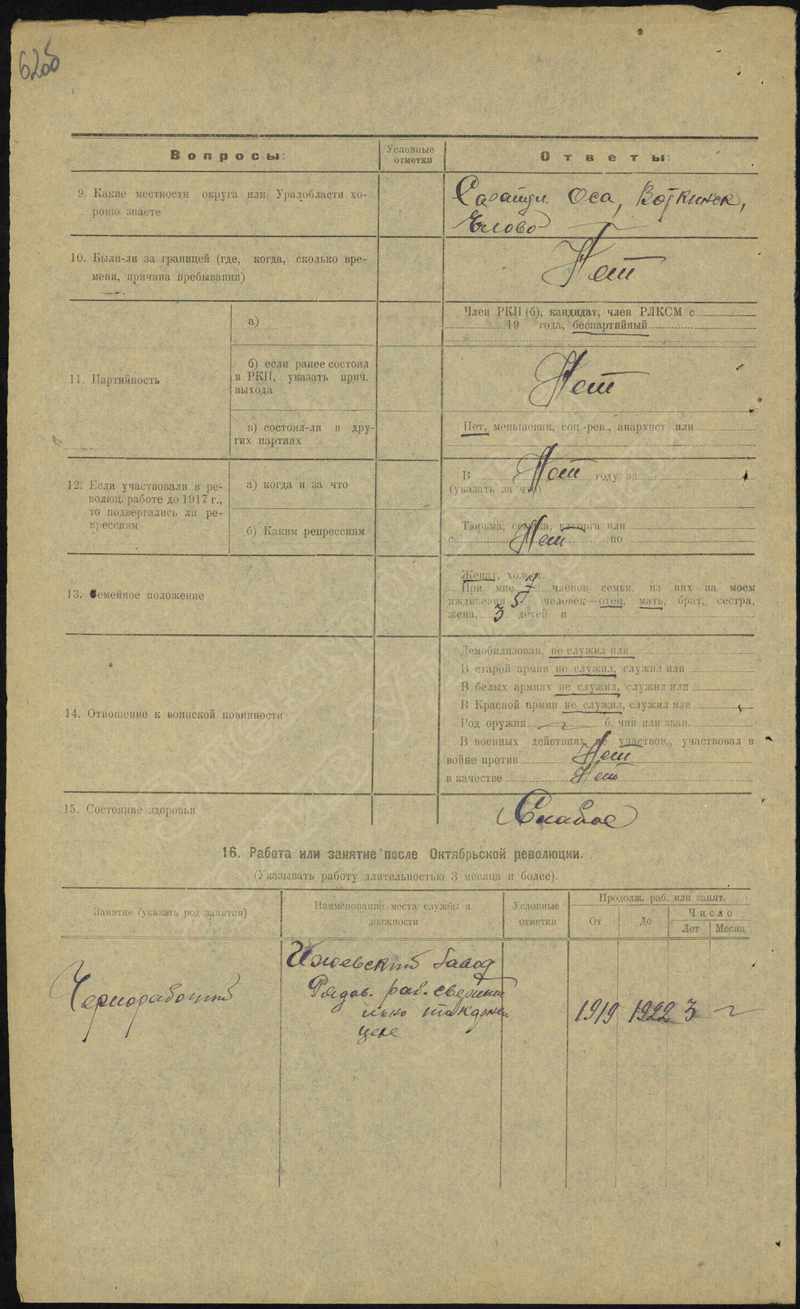 62об
Вопросы:
Условные отметки
Ответы:
9. Какие местности округа или Уралобласти хо-
рошо знаете
Оса, Воткинск,
Елово
10. Были-ли за границей (где, когда, сколько вре-
мени, причина пребывания)
Нет
11. Партийность
а)
Член РКП (б), кандидат, член РЛКСМ с
19 года, беспартийный
б) если ранее состоял
в РКП, указать прич.
выхода
Нет
в) состоял-ли в дру-
гих партиях
Нет, меньшевик, соц.-рев., анархист или
12. Если участвовали в ре-
волюц. работе до 1917 г.,
то подвергались ли ре-
прессиям
а) когда и за что
В Нет году за
(указать за что)
б) Каким репрессиям
Тюрьма, ссылка, каторга или
с Нет по
13. Семейное положение
Женат, холост.
При мне 7 членов семьи, из них на моем
иждивении 5 человек—отец, мать, брат, сестра,
жена, 3 детей и
14. Отношение к воинской повинности
Демобилизован, не служил или
В старой армии не служил, служил или
В белых армиях не служил, служил или
В Красной армии не служил, служил или
Род оружия б. чин или зван.
В военных действиях не участвов., участвовал в
войне против Нет
в качестве Нет
15. Состояние здоровья
Слабое
16. Работа или занятие после Октябрьской революции.
(Указывать работу длительностью 3 месяца и более).
Занятие (указать род занятия)
Наименование места службы и
должности
Условные
отметки
Продолж. раб. или занят.
От
До
Число
Лет
Месяц
Чернорабочий
Ижевский завод
Рядов. раб.
цехе
1919 1922 3 —